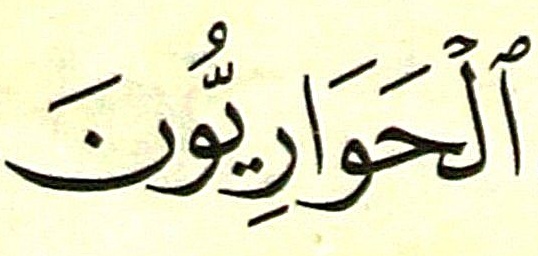 ٱلۡحَوَارِيُّونَ